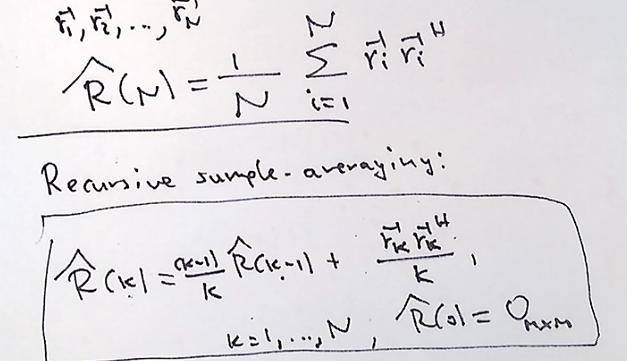 r⃗₁, r⃗₂, ..., r⃗_N
R̂(N) = 1/N ∑_{i=1}^{N} r⃗ᵢ r⃗ᵢᴴ
Recursive sample-averaging:
R̂(k) = (k-1)/k R̂(k-1) + r⃗ₖ r⃗ₖᴴ/k ,
k=1, ..., N , R̂(0) = 0_{M×M}